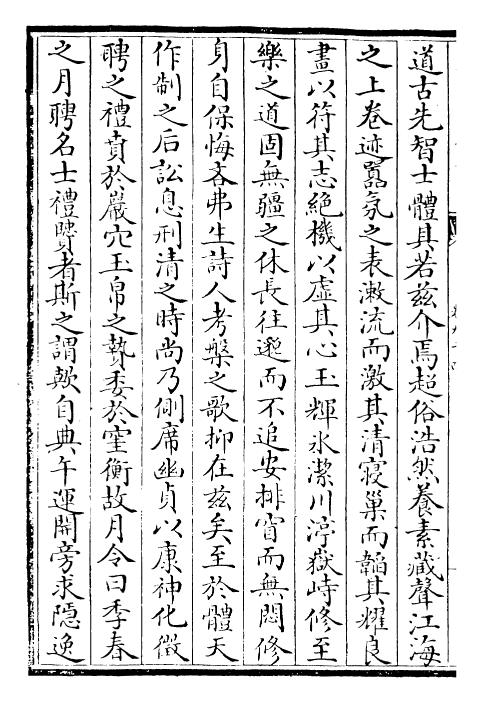 道古先智士體其若茲介焉超俗浩然養素藏聲江海
之上卷迹囂氛之表漱流而激其清寢巢而韜其耀良
畫以符其志絶機以虛其心玉輝冰潔川渟嶽峙修至
樂之道固無疆之休長往邈而不追安排窅而無悶修
身自保悔吝弗生詩人考槃之歌抑在茲矣至於體天
作制之后訟息刑清之時尚乃側席幽貞以康神化徵
聘之禮賁於巖穴玉帛之贄委於窐衡故月令曰季春
之月聘名士禮賢者斯之謂歟自典午運開旁求隱逸